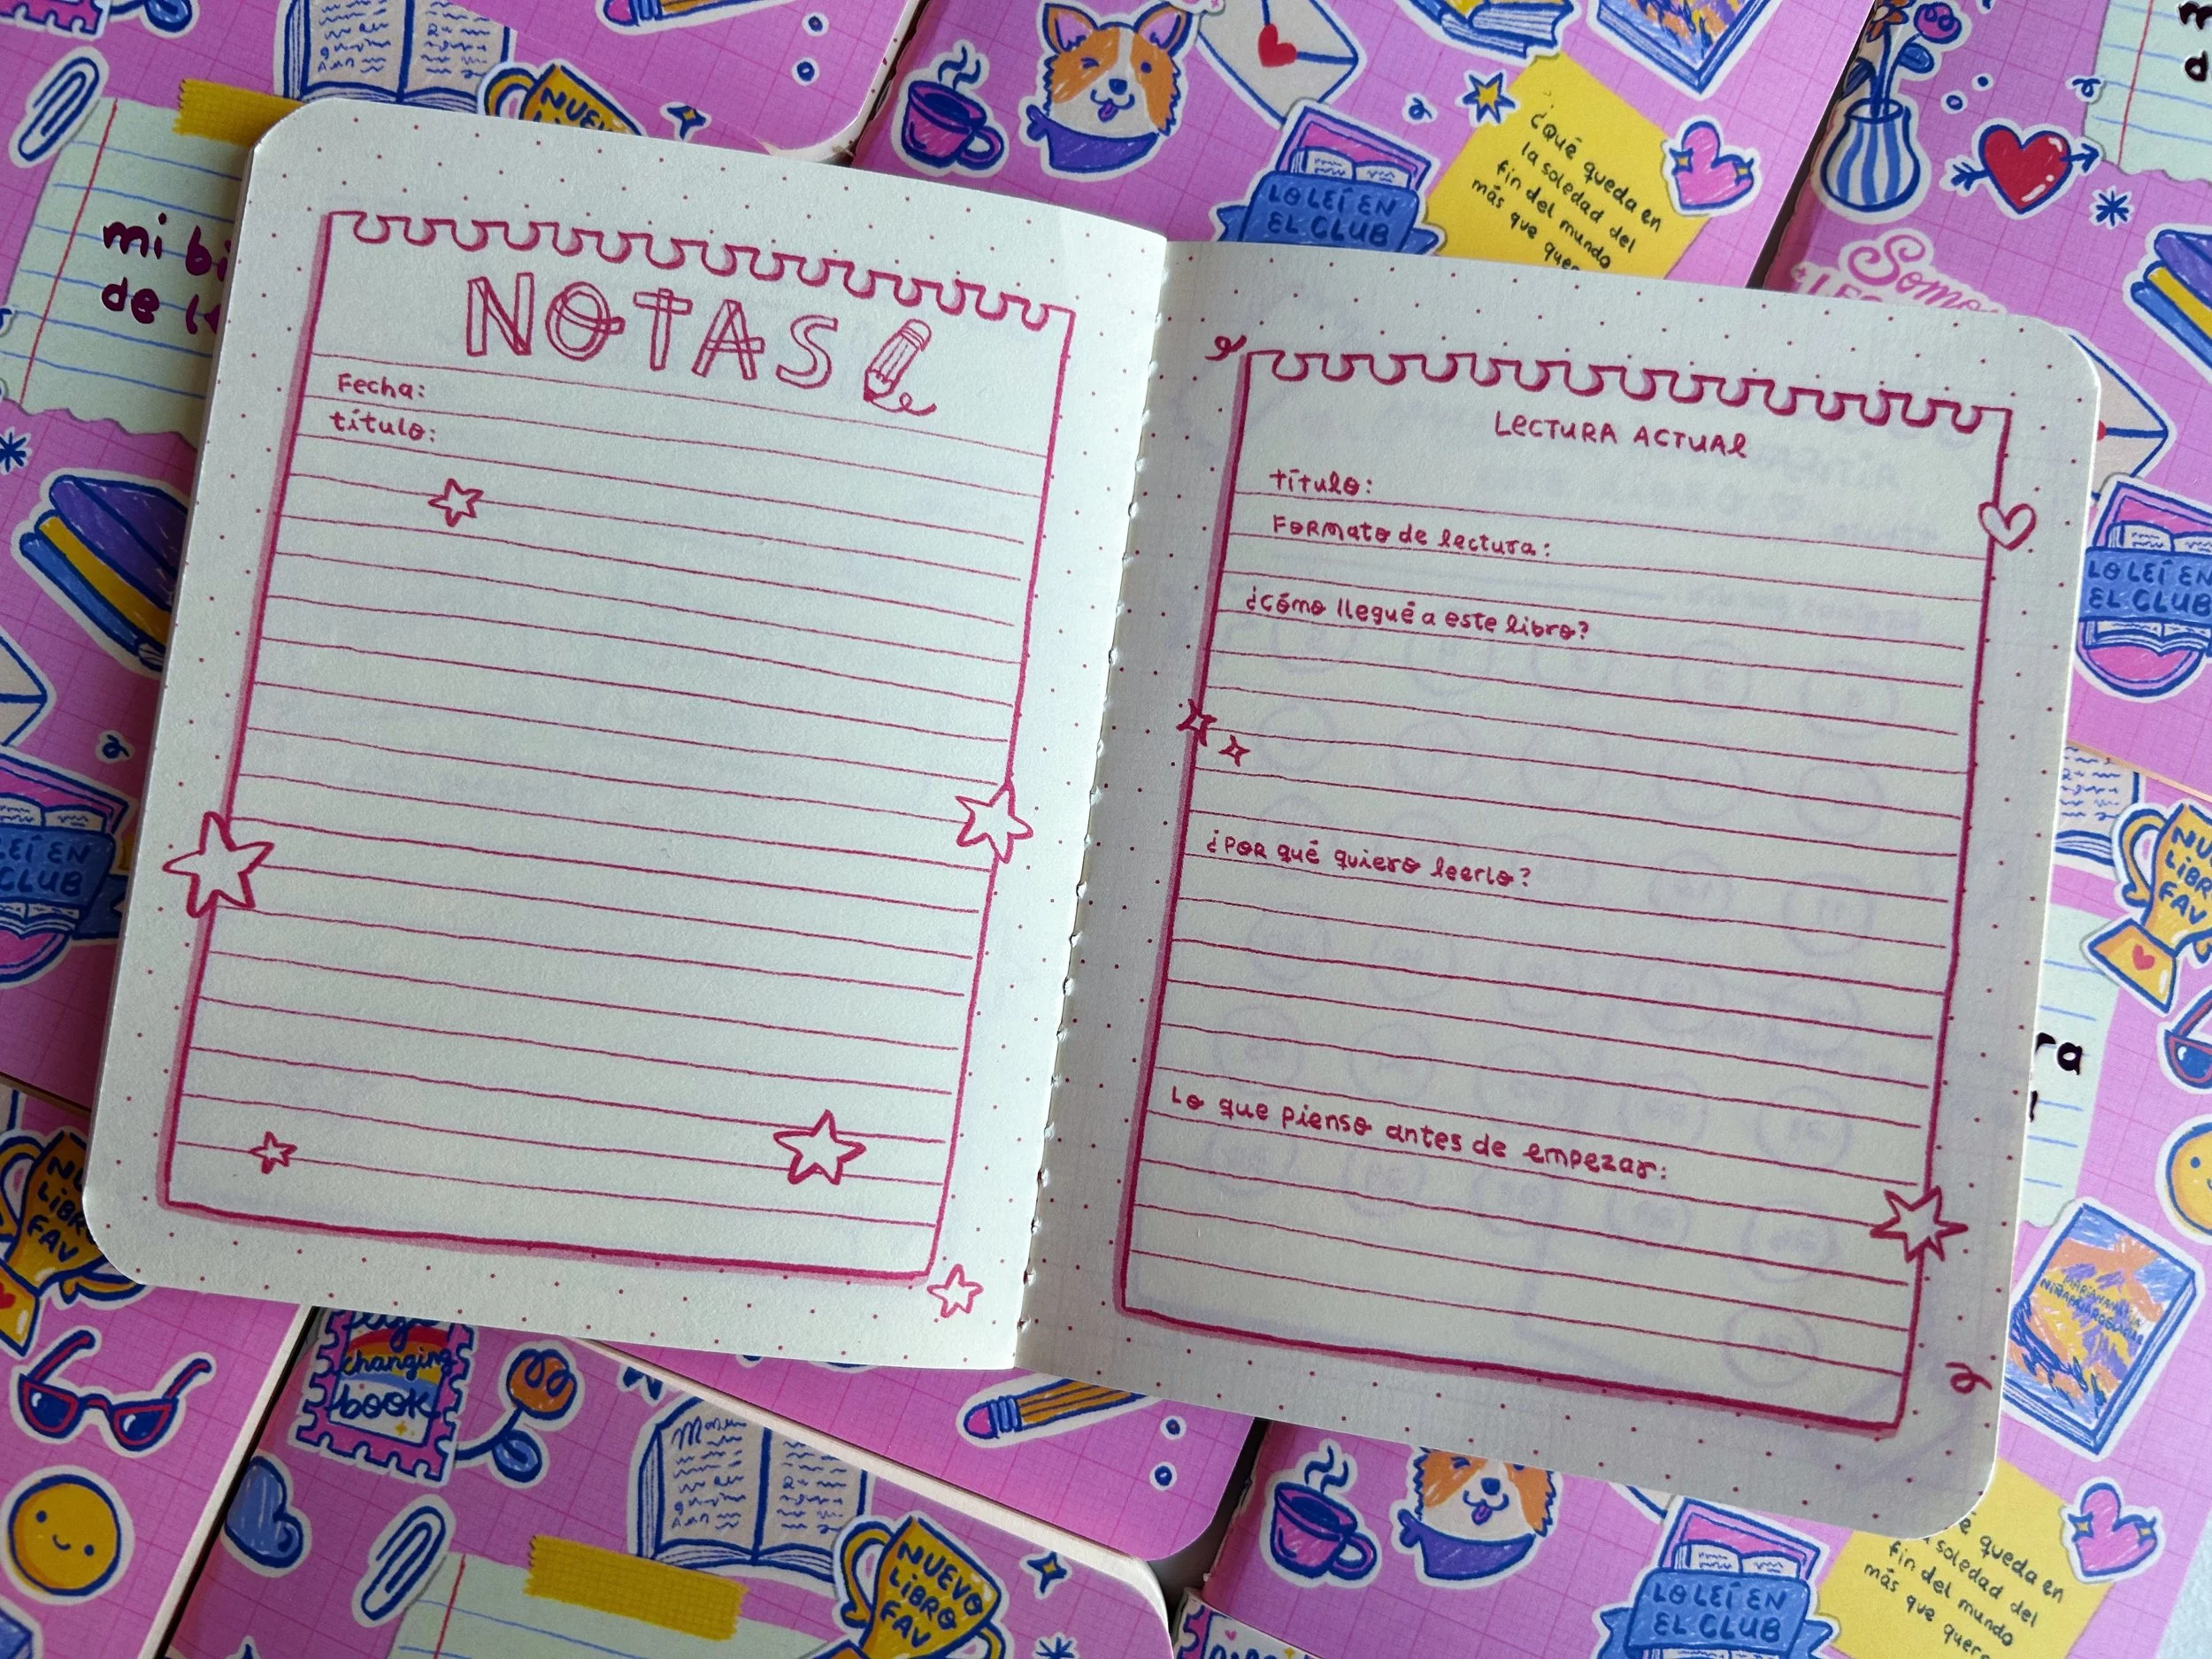 NOTAS
Fecha:
título:
LECTURA ACTUAL
título:
Formato de lectura:
¿Cómo llegué a este libro?
¿Por qué quiero leerlo?
Lo que pienso antes de empezar:
mi
de
NUEVO
LO LEÍ EN
EL CLUB
¿Qué queda en
la soledad del
fin del mundo
más que
Somo
LO LEÍ EN
EL CLUB
NUEVO
LIBRO
FAV
LEÍ EN
CLUB
LIBRO
FAV
changing
book
NUEVO
LIBRO
FAV
LO LEÍ EN
EL CLUB
queda en
soledad del
fin del mundo
más que